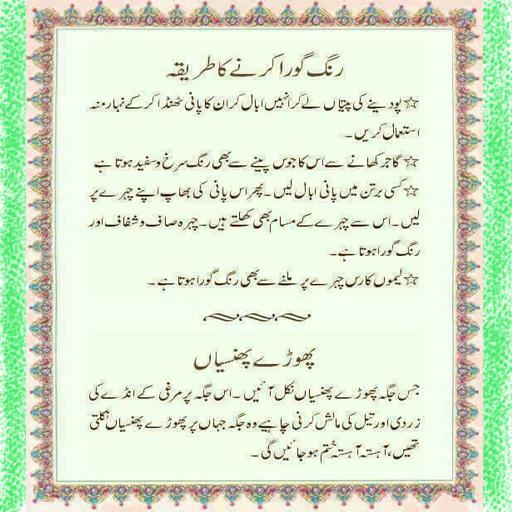 رنگ گورا کرنے کا طریقہ
☆ پودینے کی پتیاں لے کر انہیں ابال کر ان کا پانی ٹھنڈا کر کے نہار منہ
استعمال کریں۔
☆ گاجر کھانے سے اس کا جوس پینے سے بھی رنگ سرخ و سفید ہوتا ہے
☆ کسی برتن میں پانی ابال لیں۔ پھر اس پانی کی بھاپ اپنے چہرے پر
لیں۔ اس سے چہرے کے مسام بھی کھلتے ہیں۔ چہرہ صاف و شفاف اور
رنگ گورا ہوتا ہے۔
☆ لیموں کا رس چہرے پر ملنے سے بھی رنگ گورا ہوتا ہے۔
پھوڑے پھنسیاں
جس جگہ پھوڑے پھنسیاں نکل آئیں۔ اس جگہ پر مرغی کے انڈے کی
زردی اور تیل کی مالش کرنی چاہیے وہ جگہ جہاں پر پھوڑے پھنسیاں نکلتی
تھیں، آہستہ آہستہ ختم ہو جائیں گی۔